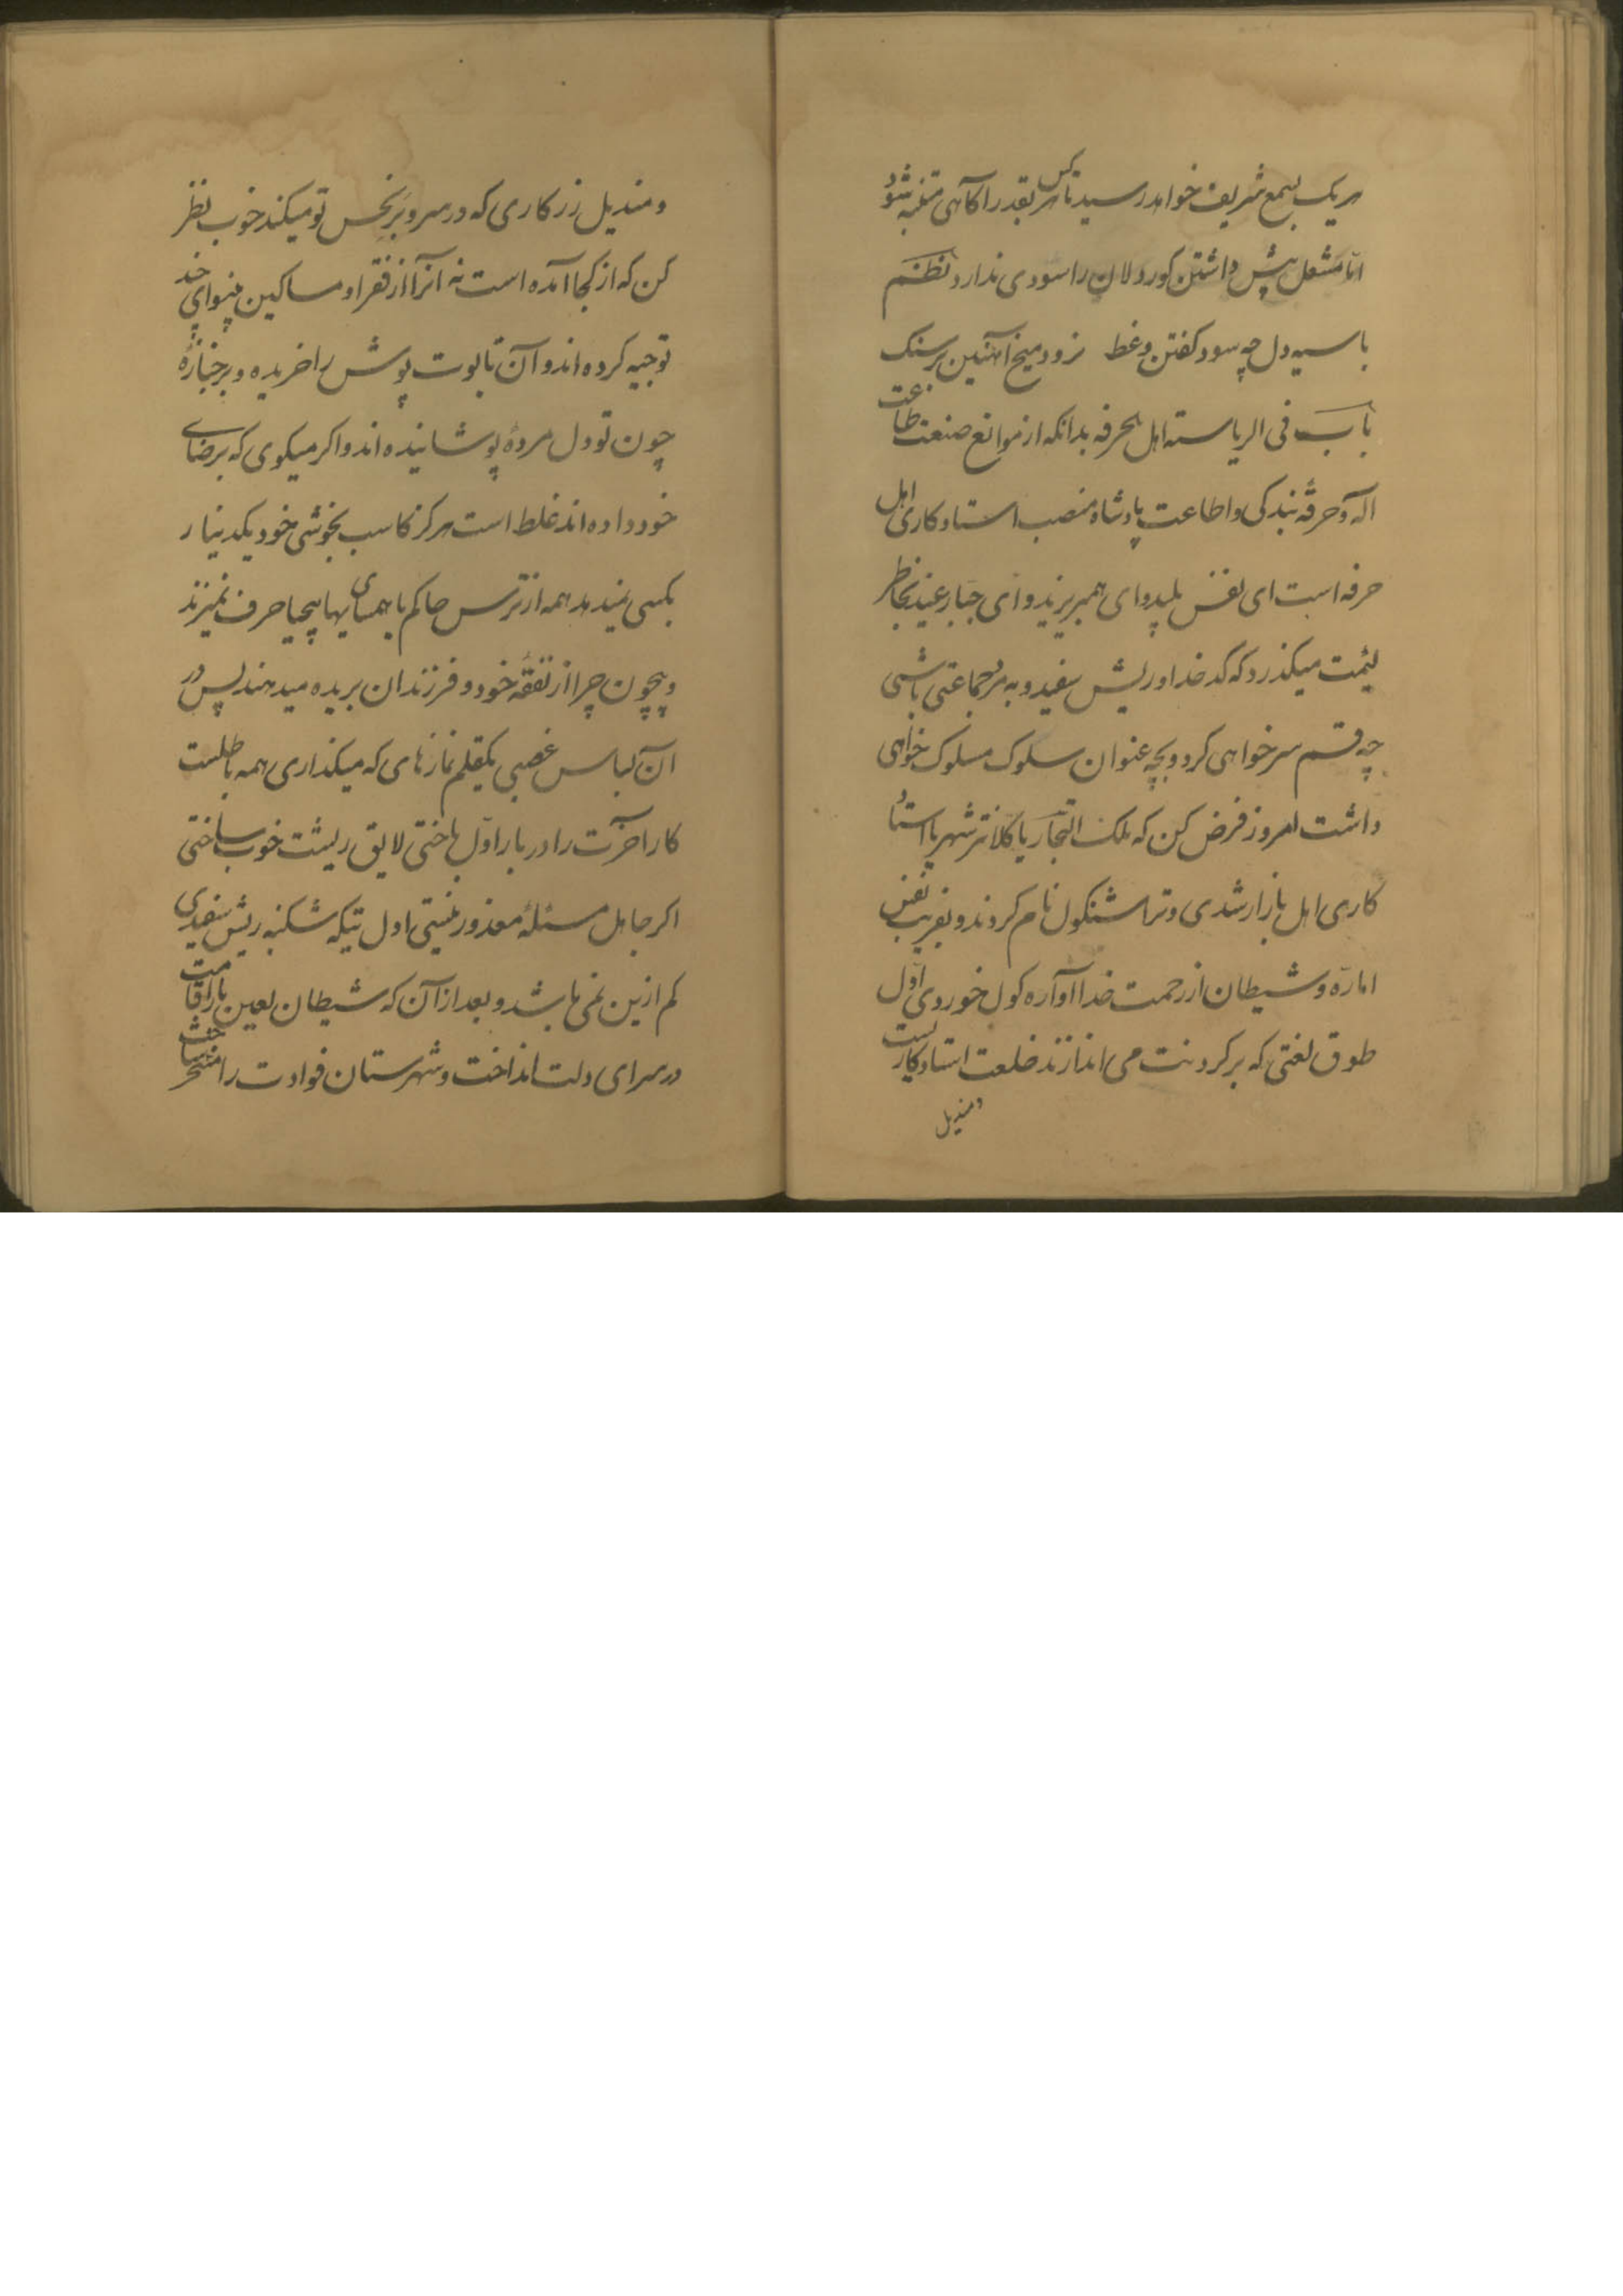 هریک بسمع شریف خواهد رسید تا هرکس بقدر آگاهی متنبه شود
اما مشعل پیش داشتن کوردلان را سودی ندارد نظم
با سیه دل چه سود کفتن وعظ نرود میخ آهنین بر سنک
باب فی الریاسته اهل الحرفه بدانکه از موانع صنعت طاعت
اله و حرفهٔ بندکی و اطاعت پادشاه منصب استادکاری اهل
حرفه است ای نفس پلید و ای همبر یزید و ای جبار عنید بخاطر
لئیمت میکذرد که کدخدا و ریش سفید و به هر جماعتی باشی
چه قسم سر خواهی کرد و بچه عنوان سلوک مسلوک خواهی
داشت امروز فرض کن که ملک التجار یا کلانتر شهر یا استاد
کاری اهل بازار شدی و ترا شنکول نام کردند و بفریب نفس
اماره و شیطان از رحمت خدا آواره کول خوردی اول
طوق لعنتی که بر کردنت می اندازند خلعت استادکاریست
و مندیل
و مندیل زرکاری که در سر و بر نحس تو میکند خوب نظر
کن که از کجا آمده است نه آنرا از فقرا و مساکین بینوای چند
توجیه کرده اند و آن تابوت پوش را خریده و بر جنازهٔ
چون تو دل مردهٔ پوشانیده اند و اکر میکوی که برضای
خود داده اند غلط است هرکز کاسب بخوشی خود یکدینار
بکسی نمیدهد همه از ترس حاکم با همسایهای بیحیا حرف نمیزند
و بیچون چرا از نفقهٔ خود و فرزندان بریده میدهند پس در
آن لباس غصبی یکقلم نمازهای که میکذاری همه باطلست
کار آخرت را در بار اول باختی لایق ریشت خوب ساختی
اکر جاهل مسئلهٔ معذور نیستی اول تیکه شکنبه ریش سفیدی
کم ازین نمی باشد و بعد از آن که شیطان لعین بار اقامت
در سرای دلت انداخت و شهرستان فوادت را مسخر ساخت